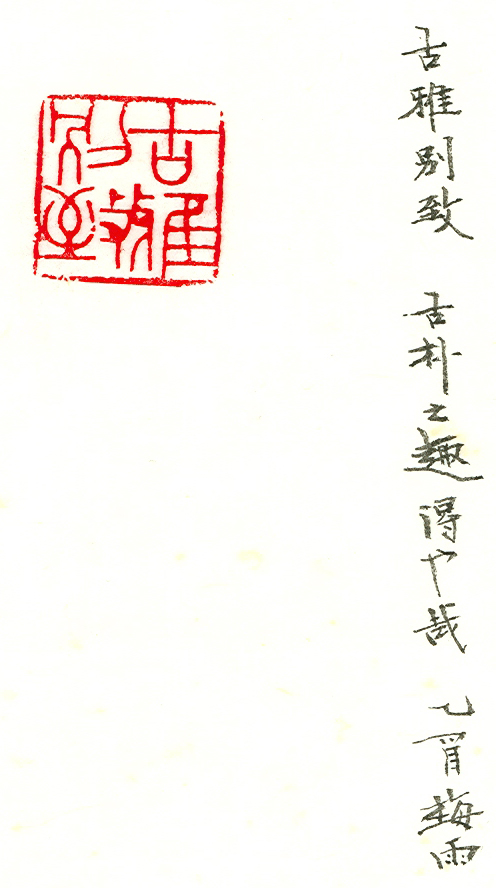 古雅别致 古朴之趣 得也哉 乙酉 梅雨
古雅
别致